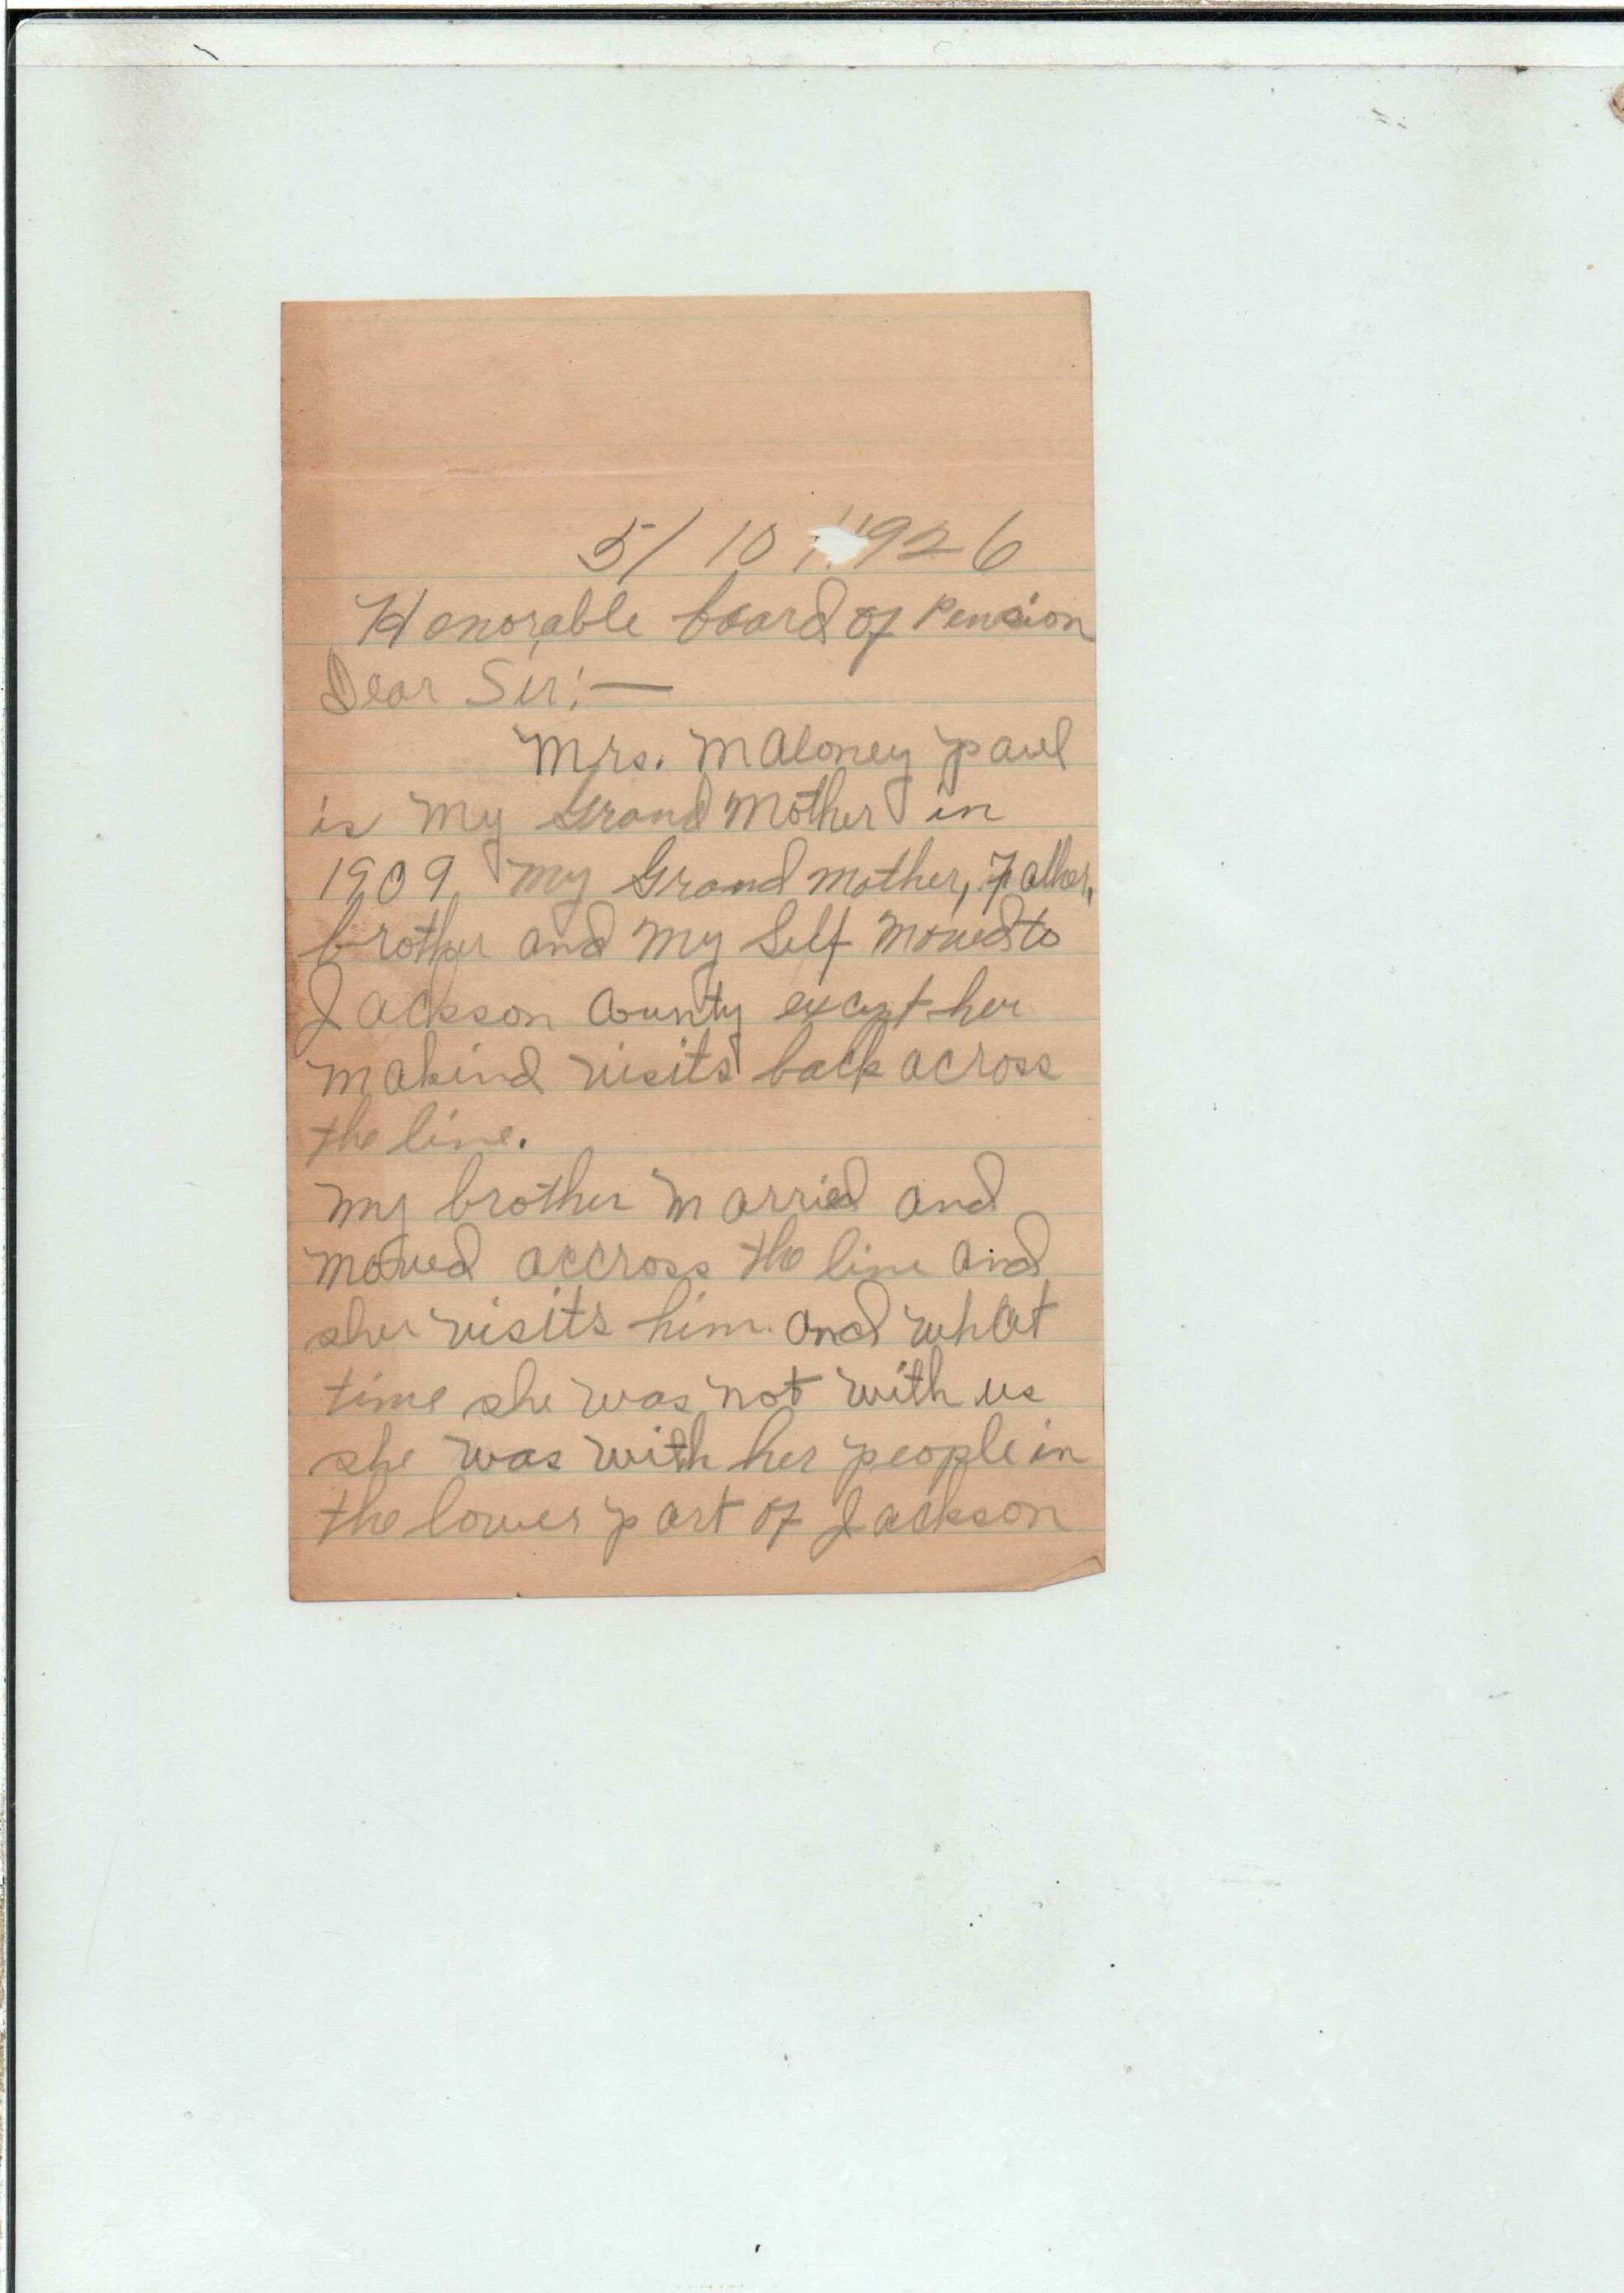 5/10/1926
Honorable board of Pension
Dear Sir:—
Mrs. Maloney paul
is My Grand Mother in
1909 My Grand mother, Father,
brother and My Self Moved to
Jackson County excpt her
makind visits back across
the line.
My brother Married and
moved accross the line and
she visits him. and what
time she was not with us
she was with her people in
the lower part of Jackson